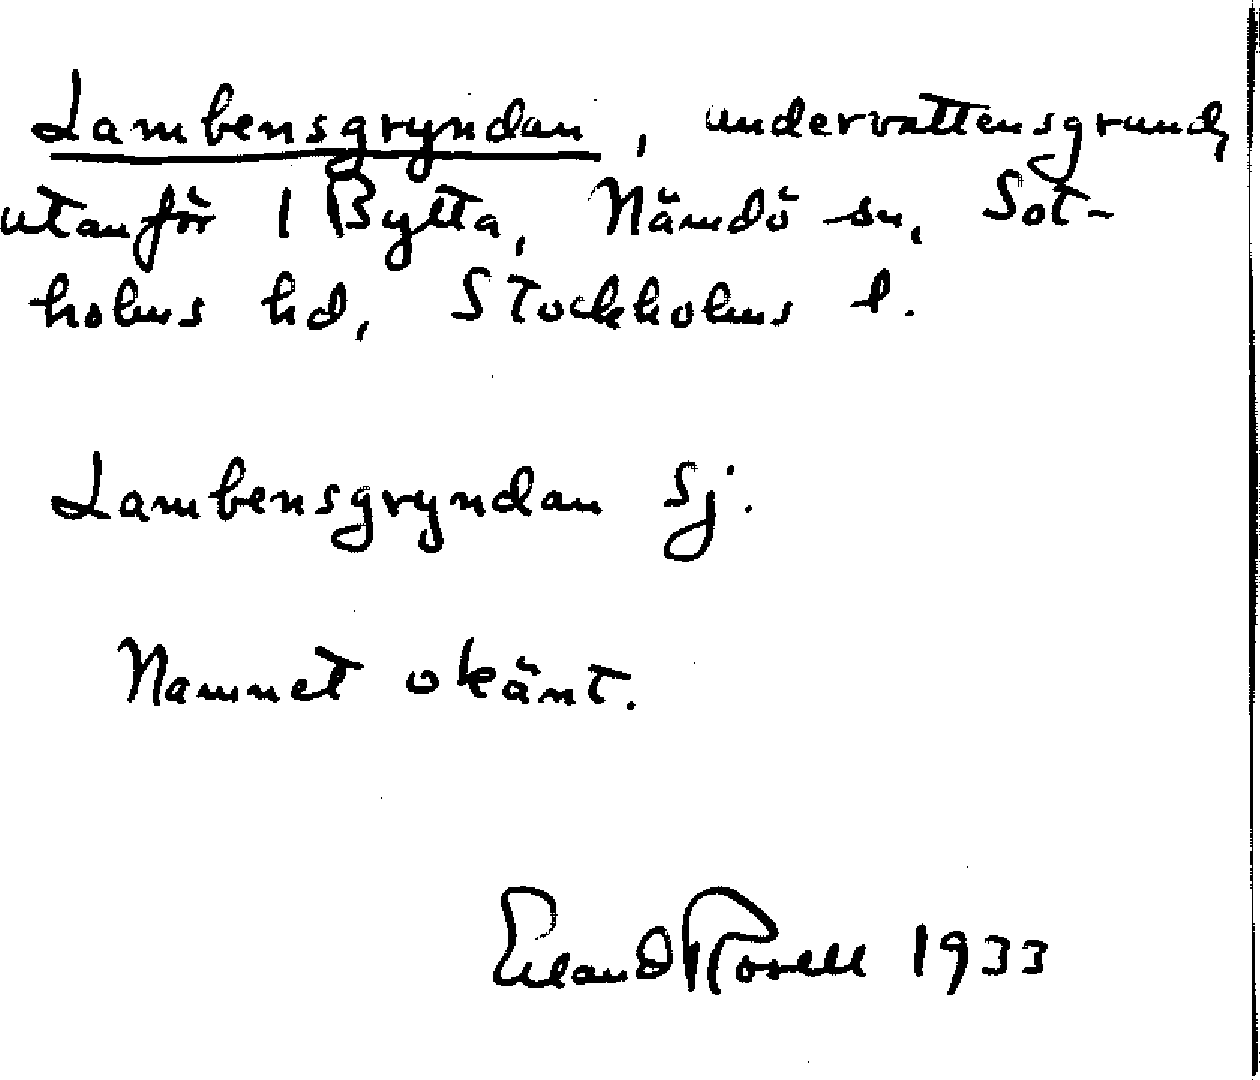 Lambensgryndan, undervattensgrund,
utanför 1 Bytta, Nämdö sn, Sot-
holms hd, Stockholms l.
Lambensgryndan Sj.
Namnet okänt.
Erland Rosell 1933